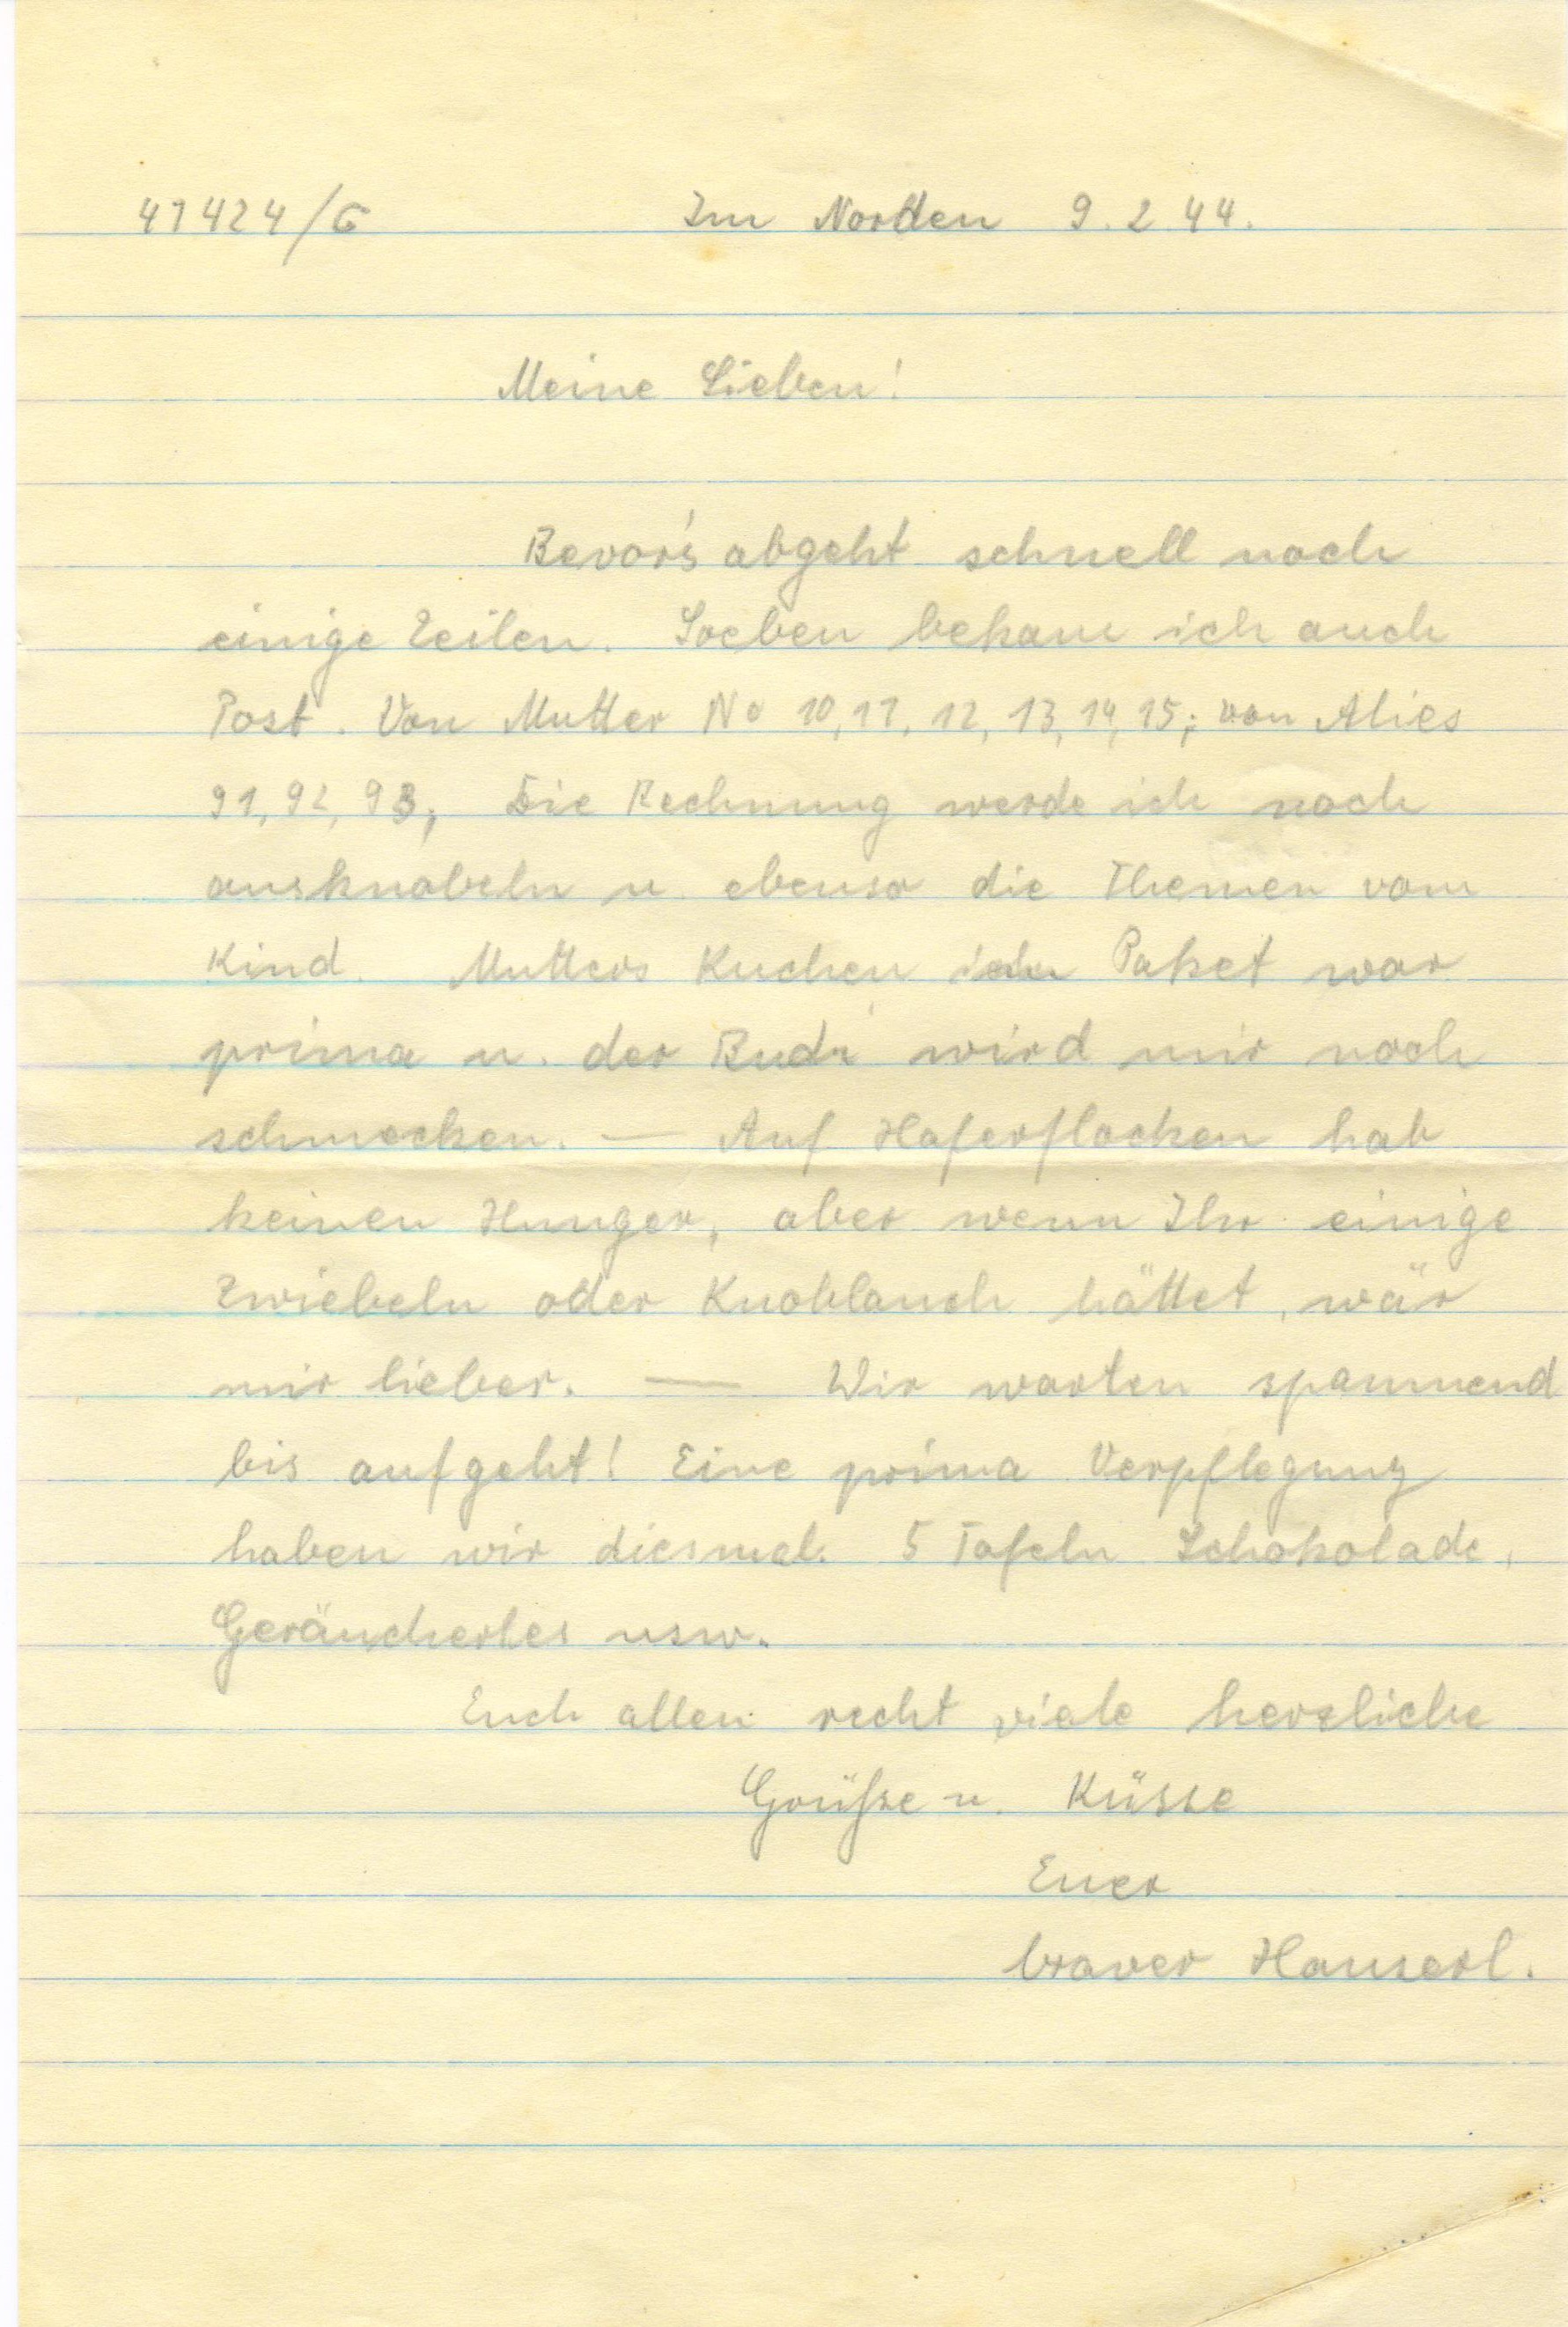 41424/G Im Norden 9.2.44.
Meine Lieben!
Bevor's abgeht schnell noch
einige Zeilen. Soeben bekam ich auch
Post. Von Mutter No 10, 11, 12, 13, 14, 15; von Alies
91, 92, 93; Die Rechnung werde ich noch
ausknobeln u. ebenso die Themen vom
Kind. Mutters Kuchen Paket war
prima u. der wird mir noch
schmecken. — Auf Haferflocken hab
keinen Hunger, aber wenn Ihr einige
Zwiebeln oder Knoblauch hättet, wär
mir lieber. — Wir warten spannend
bis aufgeht! Eine prima Verpflegung
haben wir diesmal. 5 Tafeln Schokolade,
Geräuchertes usw.
Euch allen recht viele herzliche
Grüße u. Küsse
Euer
braver Hanserl.